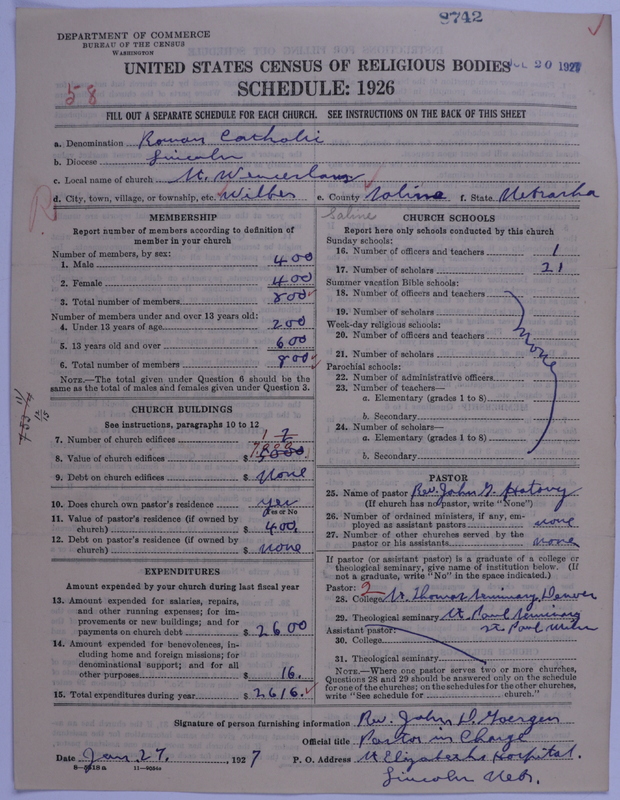 8742
DEPARTMENT OF COMMERCE
BUREAU OF THE CENSUS
WASHINGTON
UNITED STATES CENSUS OF RELIGIOUS BODIES
JUL 20 1927
58
SCHEDULE: 1926
FILL OUT A SEPARATE SCHEDULE FOR EACH CHURCH. SEE INSTRUCTIONS ON THE BACK OF THIS SHEET
a. Denomination Roman Catholic
b. Diocese Lincoln
c. Local name of church St. Wenceslaus
d. City, town, village, or township, etc. Wilber e. County Saline f. State Nebraska
Saline
MEMBERSHIP
Report number of members according to definition of
member in your church
Number of members, by sex:
1. Male 400
2. Female 400
3. Total number of members 800
Number of members under and over 13 years old:
4. Under 13 years of age 200
5. 13 years old and over 600
6. Total number of members 800
NOTE.—The total given under Question 6 should be the
same as the total of males and females given under Question 3.
CHURCH BUILDINGS
See instructions, paragraphs 10 to 12
7. Number of church edifices 1
8. Value of church edifices $
9. Debt on church edifices $ None
10. Does church own pastor's residence yes
Yes or No
11. Value of pastor's residence (if owned by
church) $ 400.
12. Debt on pastor's residence (if owned by
church) $ none
EXPENDITURES
Amount expended by your church during last fiscal year
13. Amount expended for salaries, repairs,
and other running expenses; for im-
provements or new buildings; and for
payments on church debt $ 2600
14. Amount expended for benevolences, in-
cluding home and foreign missions; for
denominational support; and for all
other purposes $ 16.
15. Total expenditures during year $ 2616.
CHURCH SCHOOLS
Report here only schools conducted by this church
Sunday schools:
16. Number of officers and teachers 1
17. Number of scholars 21
Summer vacation Bible schools:
18. Number of officers and teachers
19. Number of scholars
Week-day religious schools:
20. Number of officers and teachers
none
21. Number of scholars
Parochial schools:
22. Number of administrative officers
23. Number of teachers—
a. Elementary (grades 1 to 8)
b. Secondary
24. Number of scholars—
a. Elementary (grades 1 to 8)
b. Secondary
PASTOR
25. Name of pastor Rev. John
(If church has no pastor, write "None")
26. Number of ordained ministers, if any, em-
ployed as assistant pastors none
27. Number of other churches served by the
pastor or his assistants none
If pastor (or assistant pastor) is a graduate of a college or
theological seminary, give name of institution below. (If
not a graduate, write "No" in the space indicated.)
Pastor: 2
28. College St. Thomas Seminary Denver
29. Theological seminary St. Paul Seminary
St. Paul Minn
Assistant pastor:
30. College
31. Theological seminary
NOTE.—Where one pastor serves two or more churches,
Questions 28 and 29 should be answered only on the schedule
for one of the churches; on the schedules for the other churches,
write "See schedule for church."
Signature of person furnishing information Rev. John D. Goergen
Official title Pastor in Charge
Date Jan 27, 1927 P. O. Address St Elizabeths Hospital.
8—5818 a 11—9054a
Lincoln Neb.